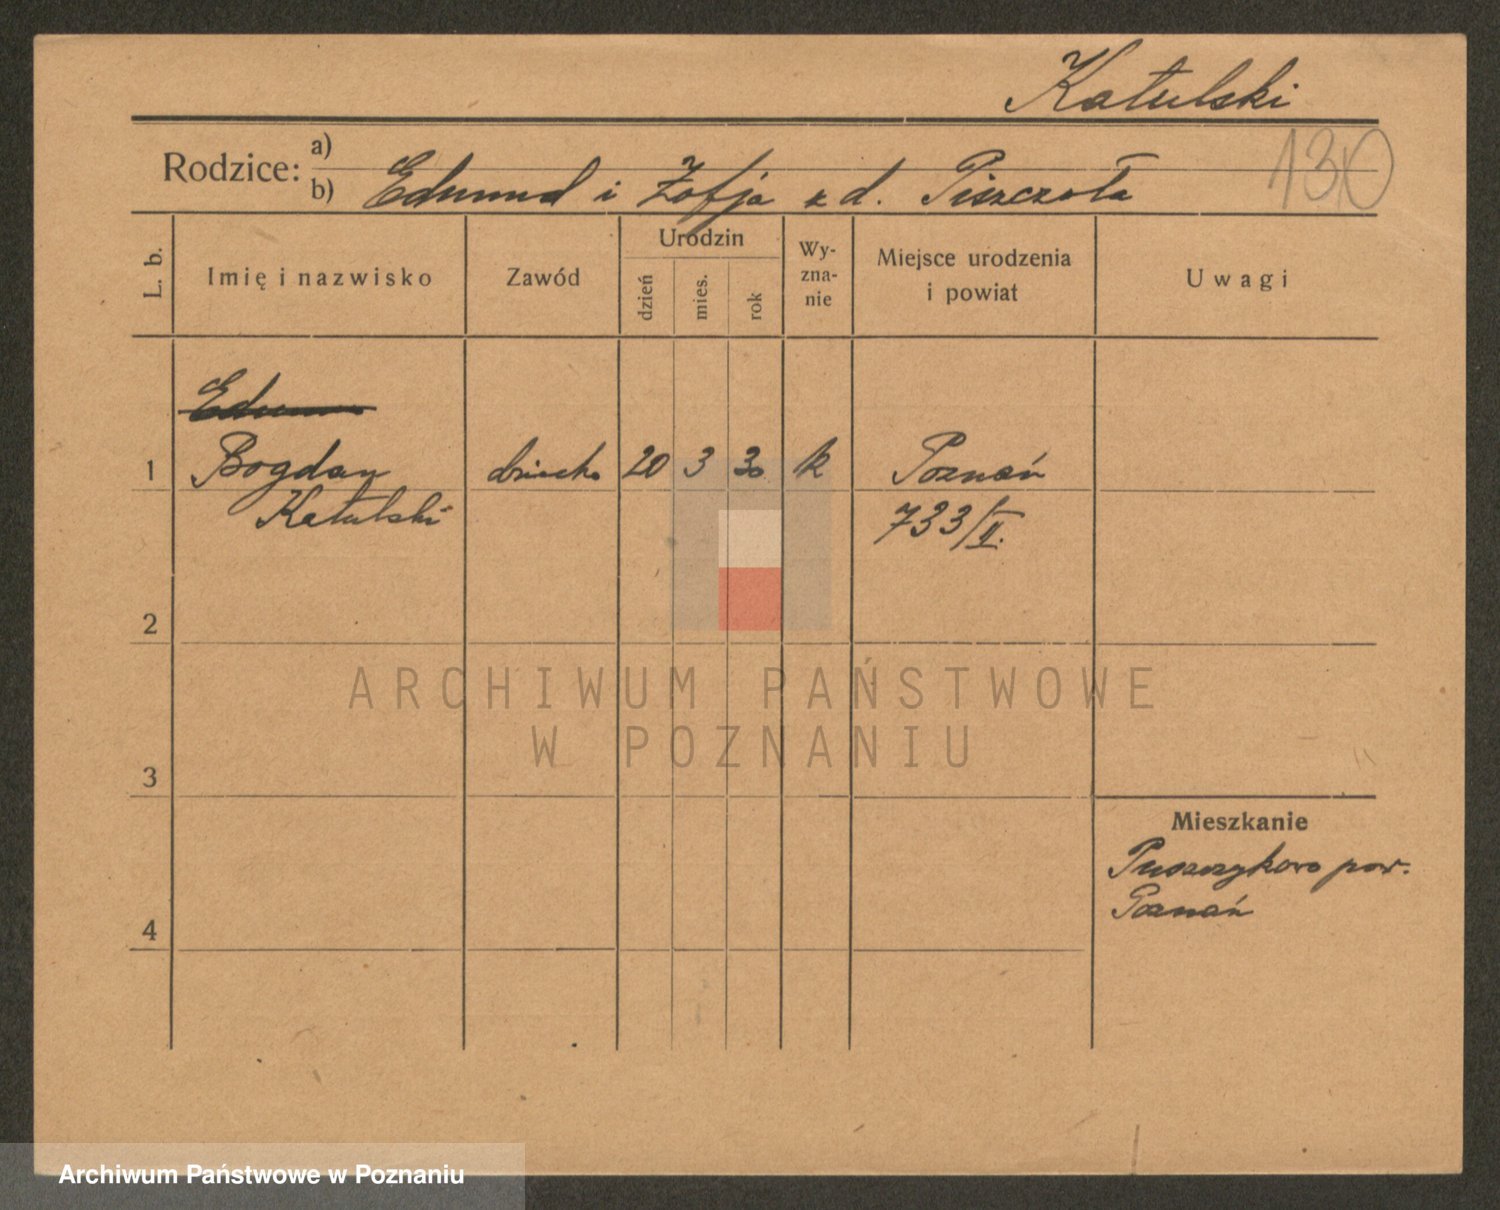 Katulski
130
Rodzice: a)
b) Edmund i Zofja z d. Piszczoła
L. b.
Imię i nazwisko
Zawód
Urodzin
dzień
mies.
rok
Wy-
zna-
nie
Miejsce urodzenia
i powiat
Uwagi
Edmun
1 Bogdan dziecko 20 3 30 k Poznań
Katulski 733/II.
2
ARCHIWUM PAŃSTWOWE
W POZNANIU
3
Mieszkanie
Puszczykowo pow.
Poznań
4
Archiwum Państwowe w Poznaniu